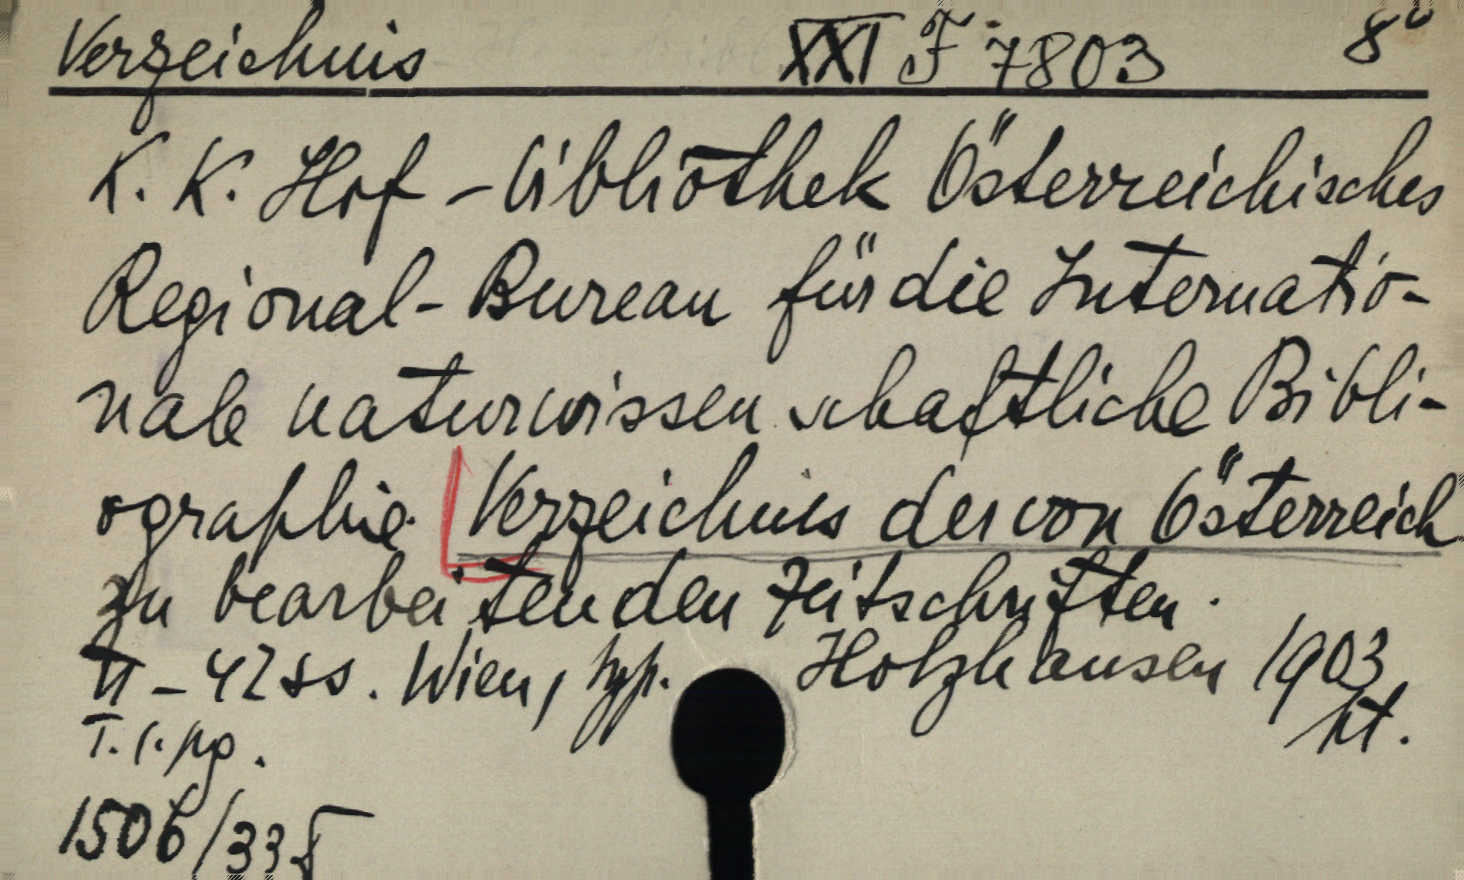 Verzeichnis XXI F 7803 8°
K. K. Hof-bibliothek Österreichisches
Regional-Bureau für die Internatio-
nale naturwissenschaftliche Bibli-
ographie. Verzeichnis der von Österreich
zu bearbeitenden Zeitschriften.
II - 42 ss. Wien, typ. Holzhausen 1903
T. s. pg.
1506/33